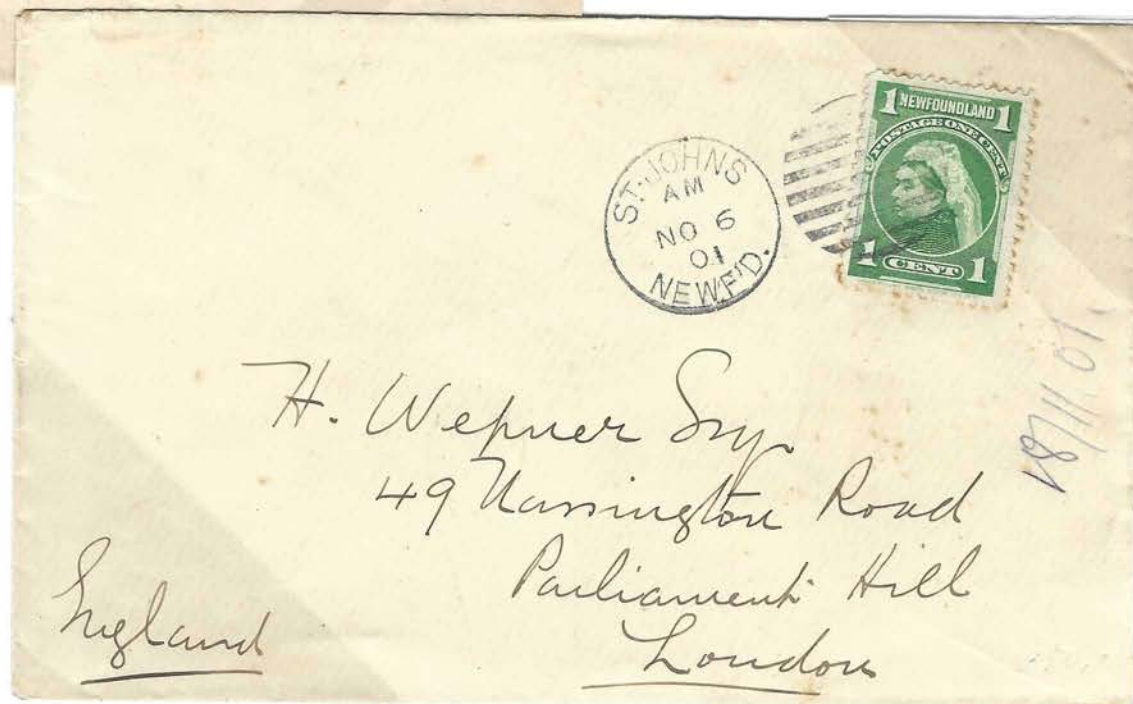 1 NEWFOUNDLAND 1
POSTAGE ONE CENT
1 CENT 1
ST. JOHNS
AM
NO 6
01
NEWF'D.
18/11.01.
H. Wepner Esq.
49 Nassington Road
Parliament Hill
London
England